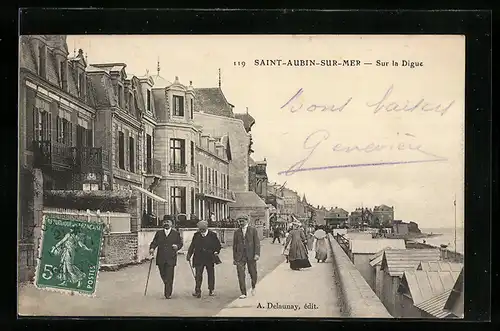 119 SAINT-AUBIN-SUR-MER — Sur la Digue
Bons baisers
Geneviève
POSTES
5c
A. Delaunay, édit.